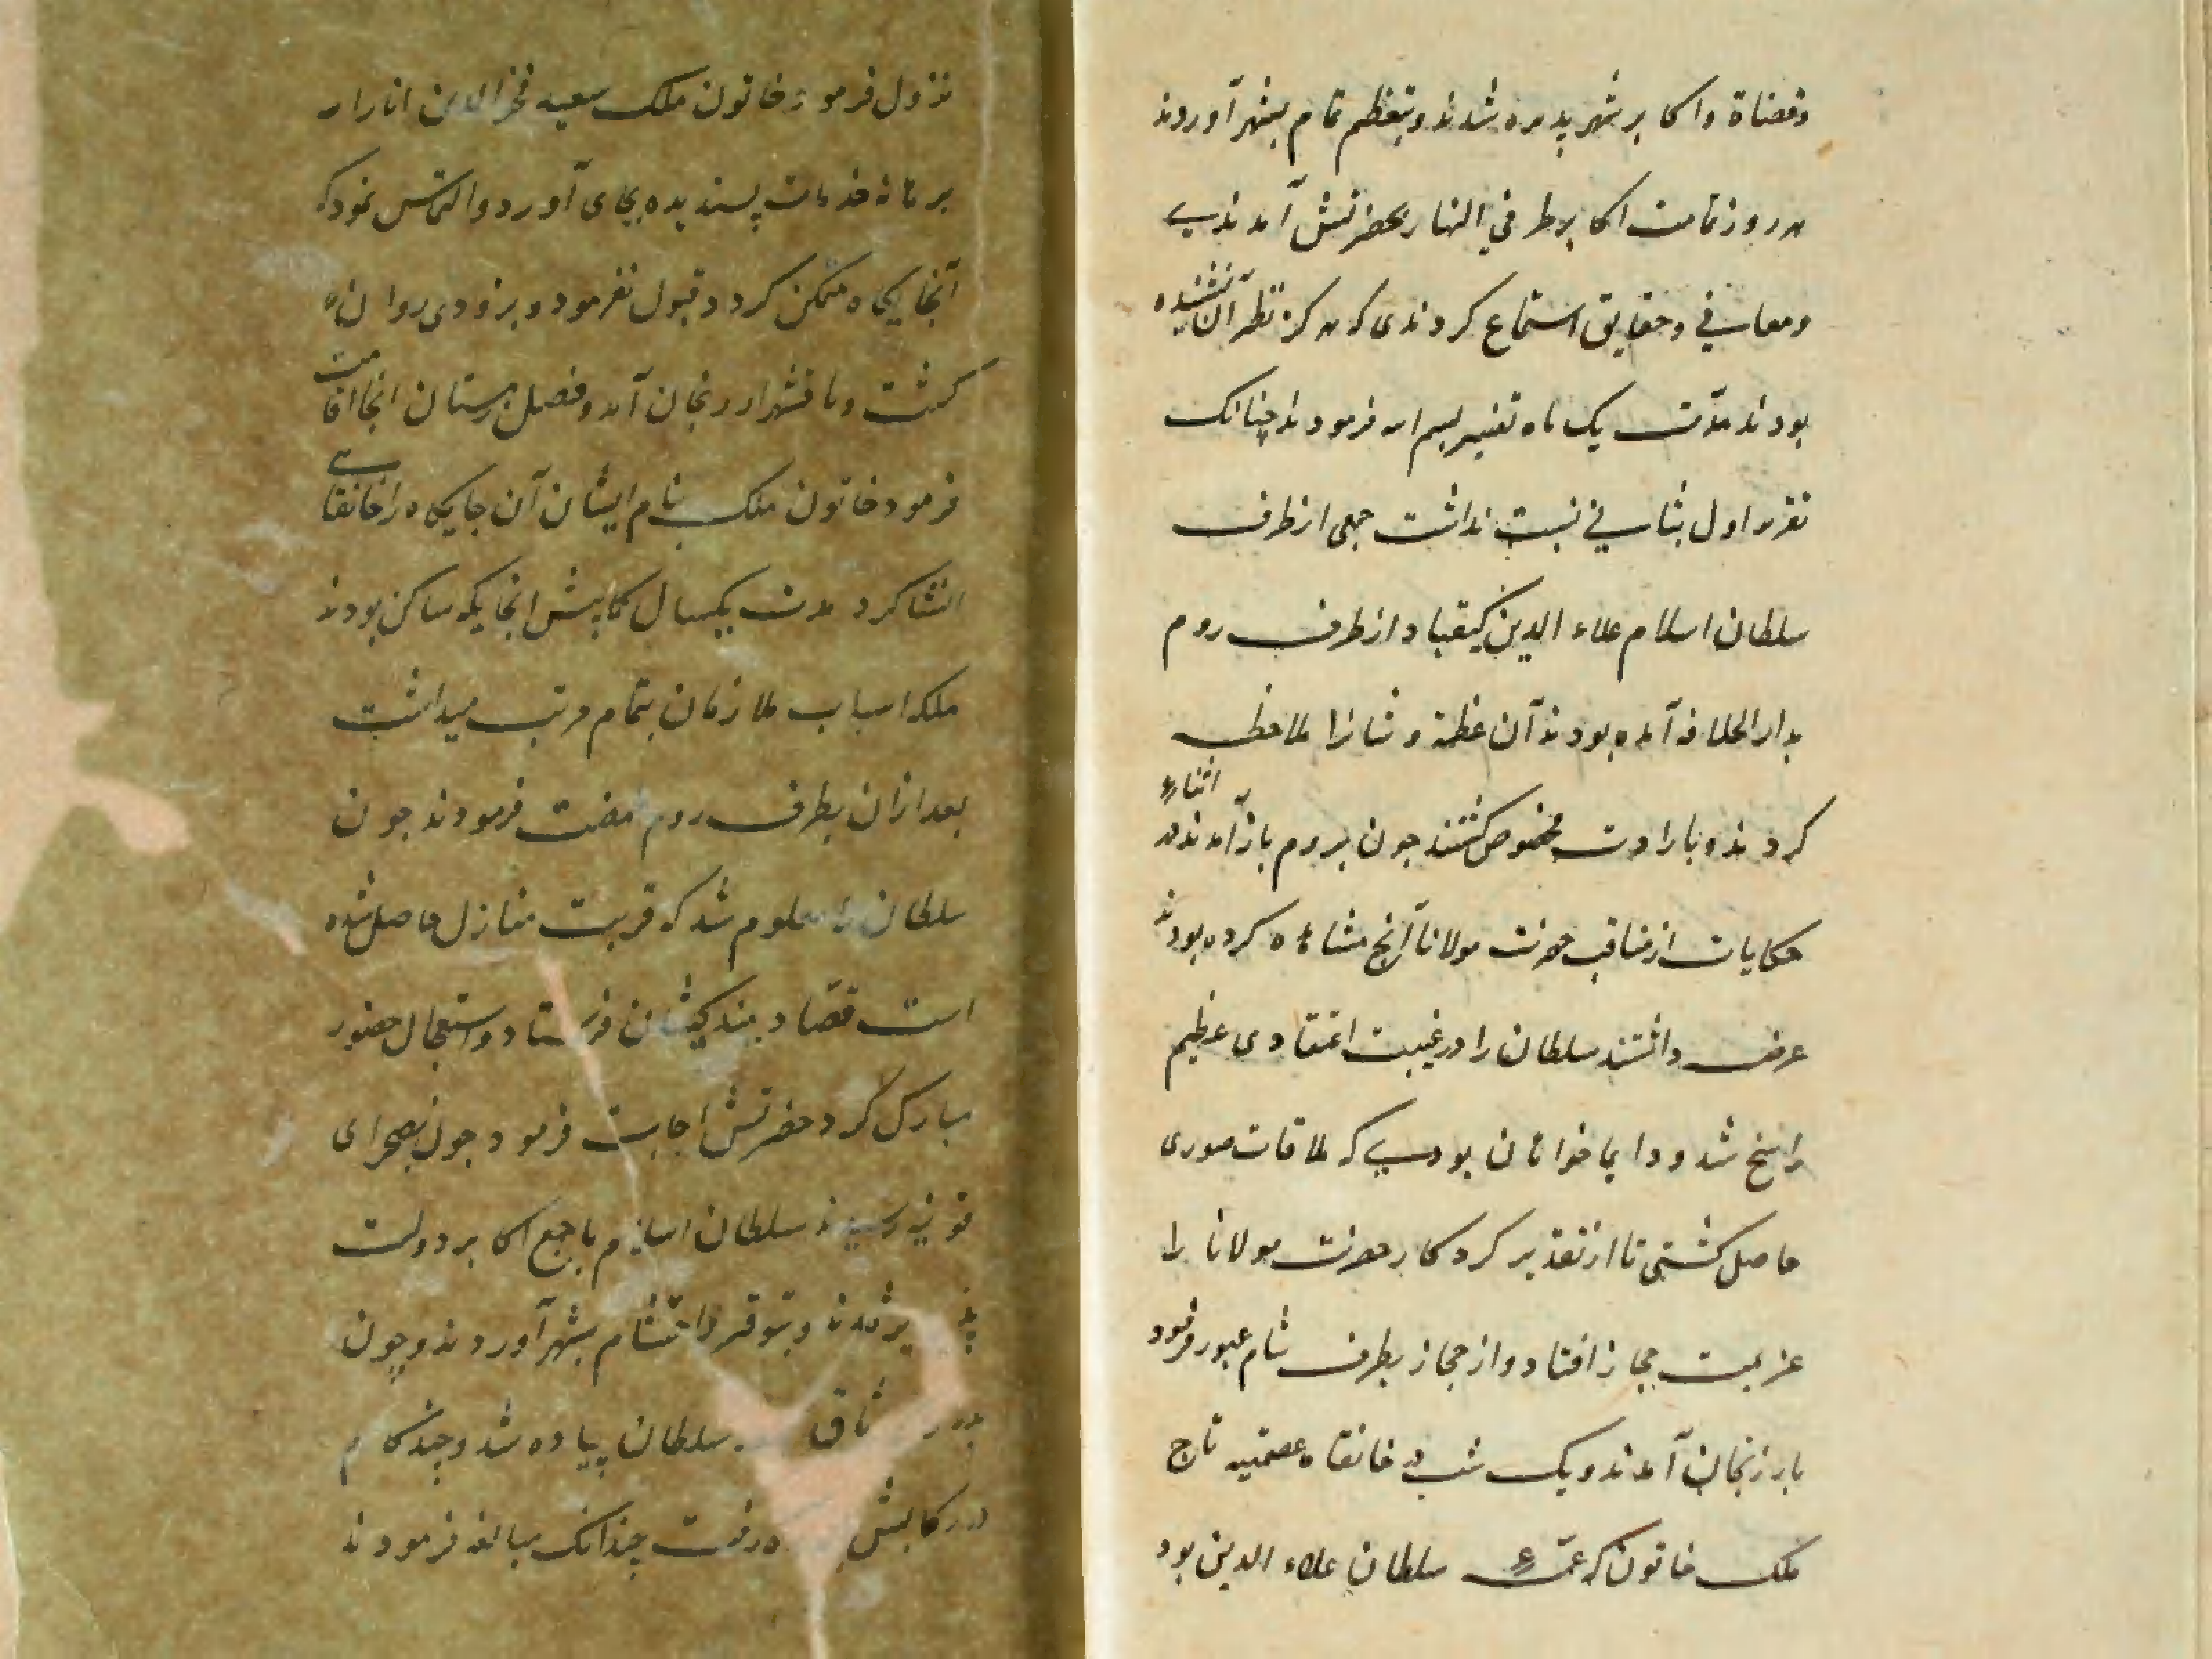 وقضاة واکابر شهر پذیره شدند وبتعظیم تمام بشهر آوردند
هر روز تمامت اکابر طرفي النهار بحضرتش آمدندي
ومعاني وحقایق استماع کردندی که هرکز نظیر آن نشنیده
بودند مدّت یک ماه تفسیر بسم الله فرمودند چنانک
تقریر اول بثاني نسبت نداشت جمعی از طرف
سلطان اسلام علاء الدین کیقباد از طرف روم
بدار الخلافه آمده بودند آن عظمة وشانرا ملاحظه
کردند وبارادت مخصوص کشتند جون بروم باز آمدند در اثناء
حکایات از مناقب حضرت مولانا آنج مشاهده کرده بودند
عرض داشتند سلطان را در غیبت اعتقادی عظیم
راسخ شد ودایما خواهان بودي که ملاقات صوری
حاصل کشتی تا از تقدیر کردکار حضرت مولانا را
عزیمت حجاز افتاد واز حجاز بطرف شام عبور فرمود
بارزنجان آمدند ویک شب در خانقاه عصمتیه تاج
ملک خاتون که عمّهٔ سلطان علاء الدین بود
نزول فرمود خاتون ملک سعید فخر الدین انار الله
برهانه خدمات پسندیده بجای آورد والتماس نمود که
آنجایکاه متمکن کردد قبول نفرمود وبزودی روانه
کشت وباقشهر ارزنجان آمد وفصل زمستان انجا اقامت
فرمود خاتون ملک بنام ایشان آن جایکاه را خانقاهي
انشا کرد مدت یکسال کمابیش انجایکه ساکن بودند
ملکه اسباب ملازمان بتمام مرتب میداشت
بعد ازان بطرف روم نهضت فرمودند جون
سلطان را معلوم شد که قربت منازل حاصل شده
است قصّاد ببندکیشان فرستاد واستعجال حضور
مبارک کرد حضرتش اجابت فرمود جون بصحرای
قونیه رسیدند سلطان اسلام با جمع اکابر دولت
پذیره شدند وبتوقیر واحتشام بشهر آوردند وچون
سلطان پیاده شد وچند کام
در رکابش رفت چندانک مبالغه فرمودند